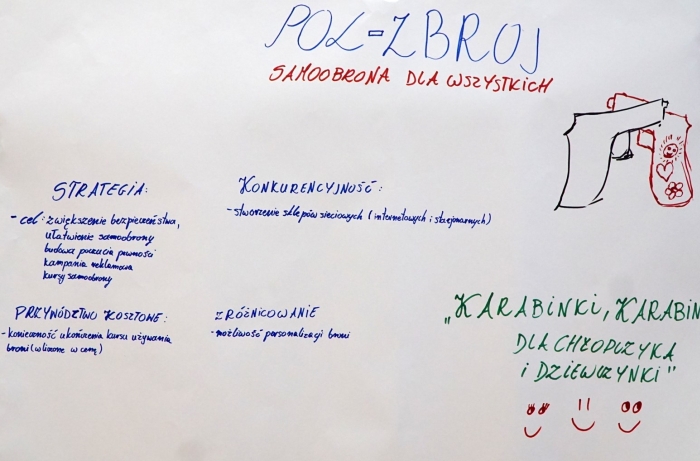 POL-ZBROJ
SAMOOBRONA DLA WSZYSTKICH
STRATEGIA:
- cel: zwiększenie bezpieczeństwa,
ułatwienie samoobrony
budowa poczucia pewności
kampania reklamowa
kursy samoobrony
KONKURENCYJNOŚĆ:
- stworzenie sklepów sieciowych (internetowych i stacjonarnych)
PRZYWÓDZTWO KOSZTOWE:
- konieczność ukończenia kursu używania
broni (wliczone w cenę)
ZRÓŻNICOWANIE
- możliwość personalizacji broni
„KARABINKI, KARABIN
DLA CHŁOPCZYKA
i DZIEWCZYNKI"